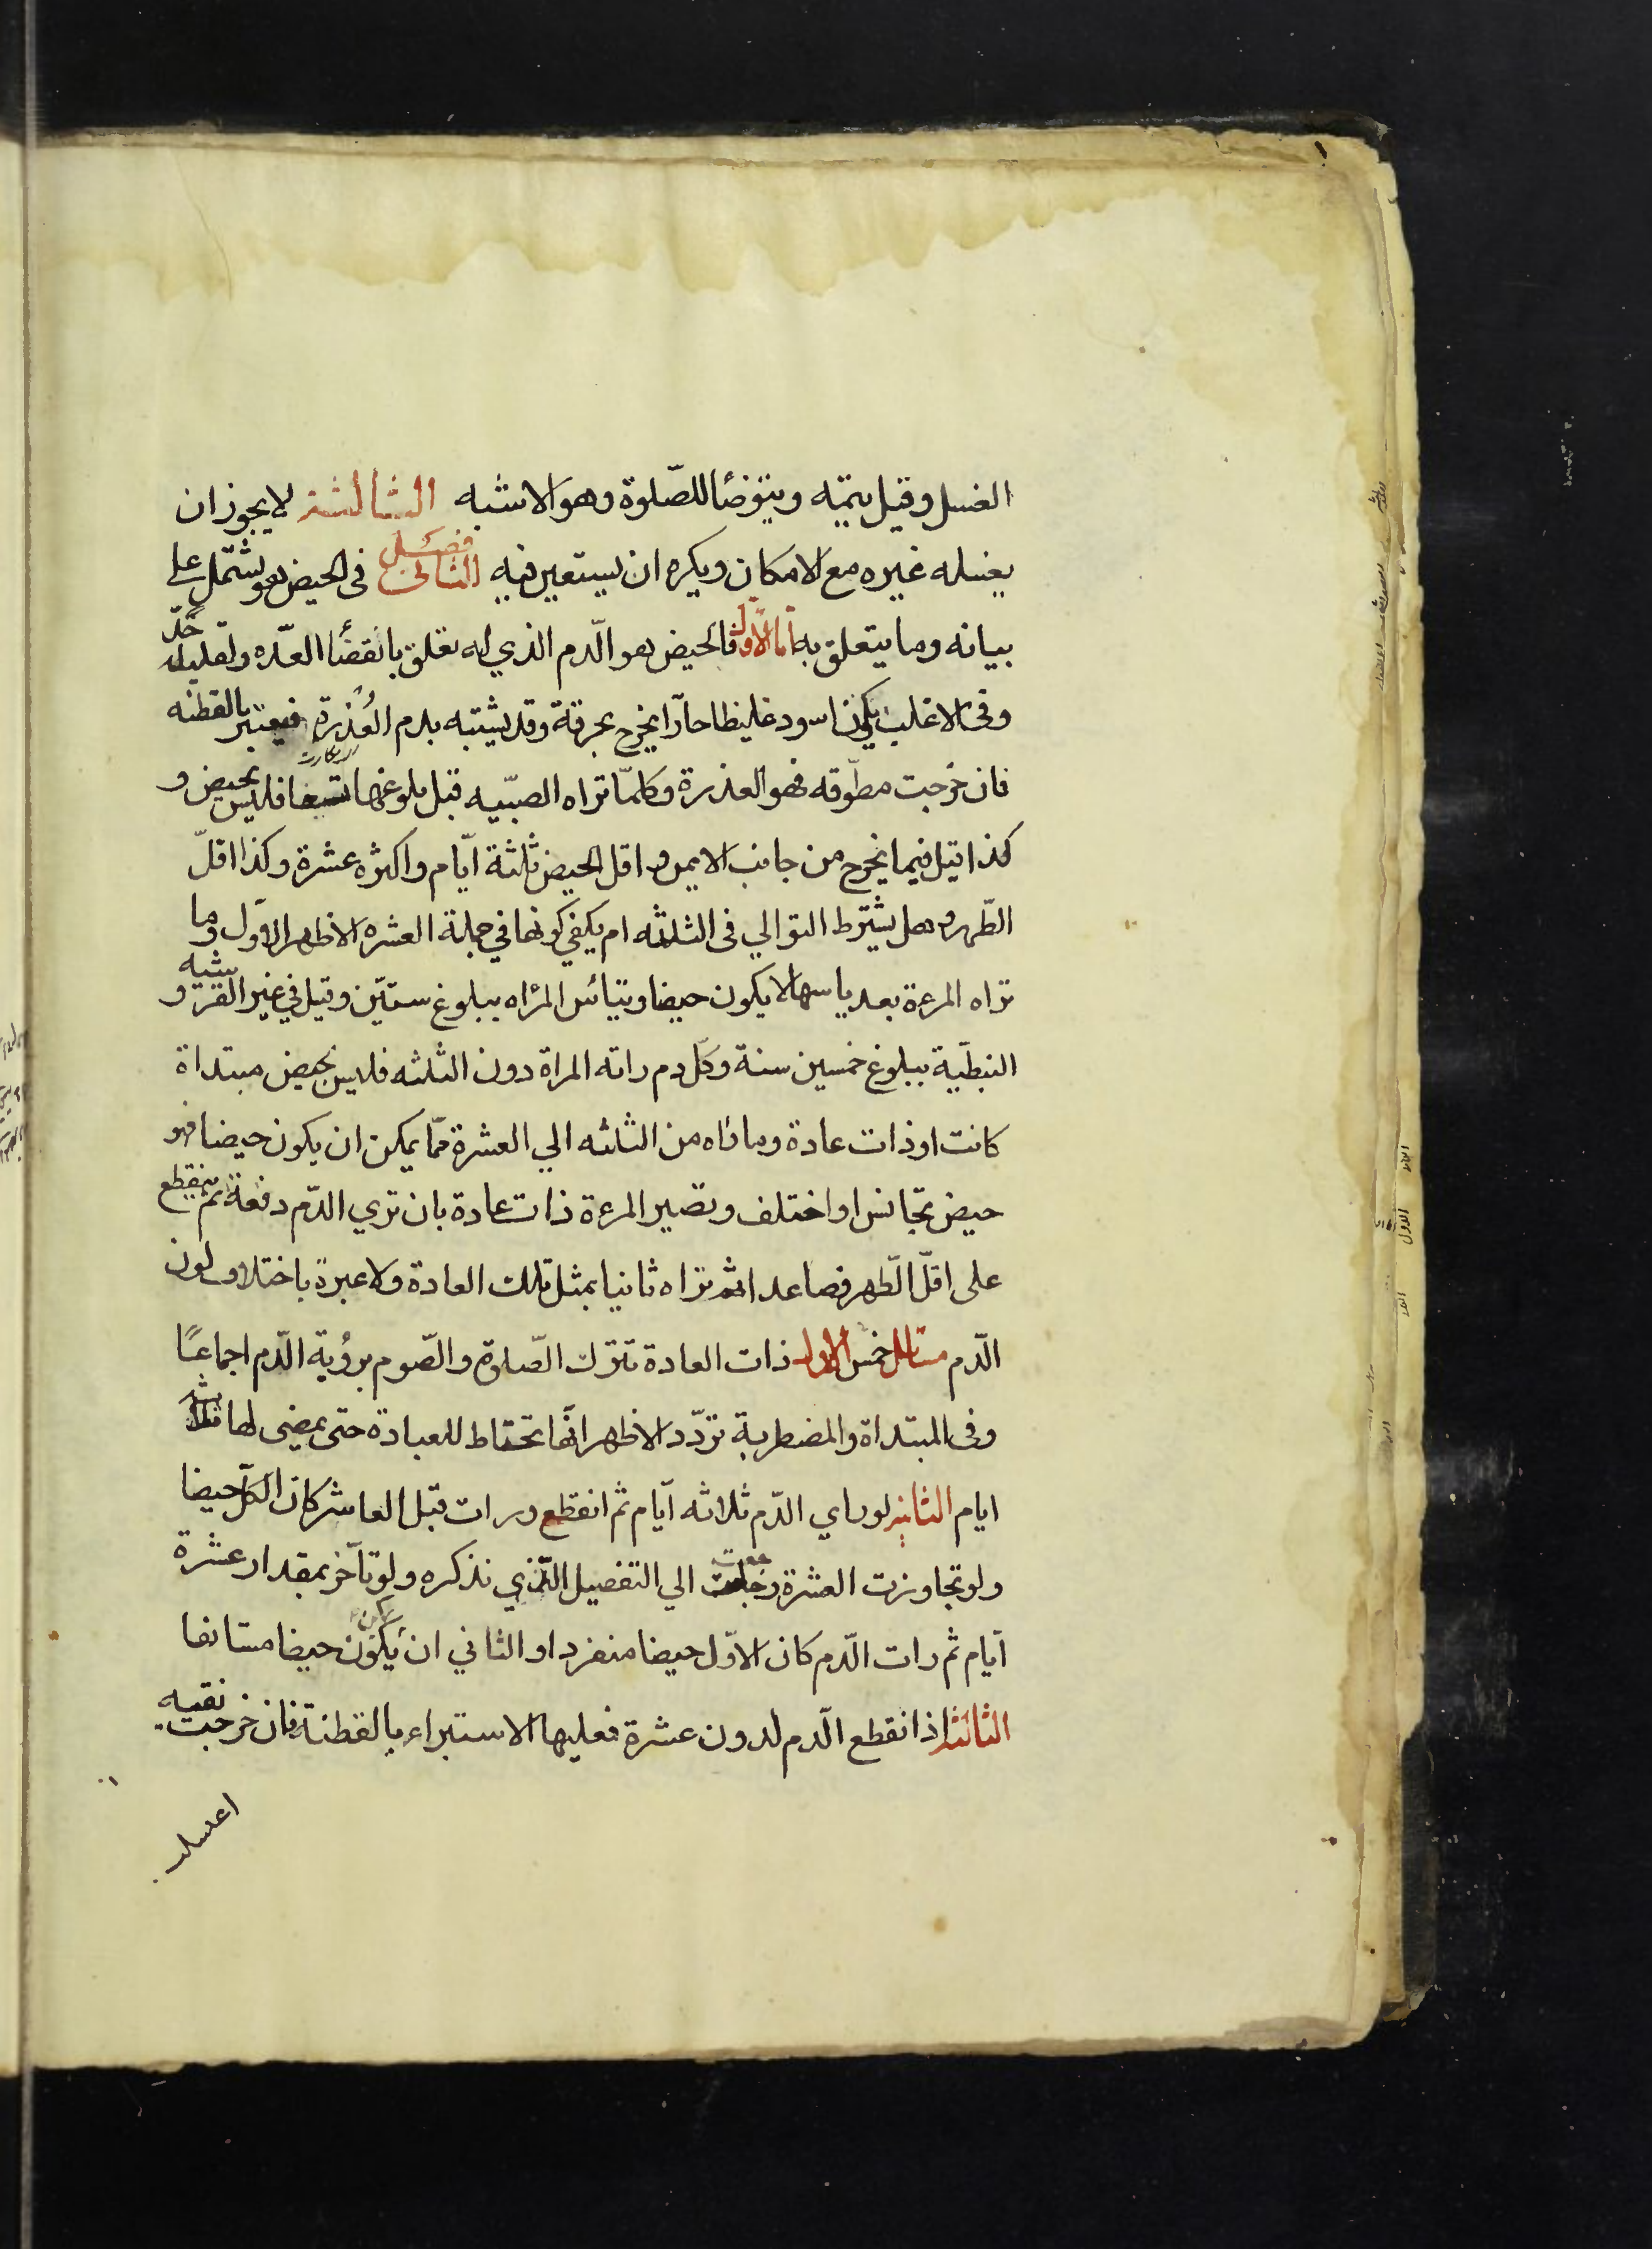 الغسل وقيل يتمه ويتوضا للصّلوة وهو الاشبه الثالثة لا يجوز ان
يغسله غيره مع الامكان ويكره ان يستعين فيه الفصل الثاني في الحيض وهو يشتمل على
بيانه وما يتعلق به اما الاول فالحيض هو الّدم الذي له تعلق بانقضاء العدّه ولقليله حدّ
وفي الاغلب يكون اسود غليظا حارّا يخرج بحرقة وقد يشتبه بدم العُذرة فيعتبر بالقطنه
فان خرجت مطوّقه فهو العذرة وكلمّا تراه الصبّيه قبل بلوغها تسعا فليس بحيض و
كذا قيل فيما يخرج من جانب الايمن و اقل الحيض ثلثة ايّام واكثره عشرة وكذا اقلّ
الطّهر وهل يشترط التوالي في الثلثه ام يكفي كونها في جملة العشره الاظهر الاوّل وما
تراه المرءة بعد ياسها لا يكون حيضا وتيائس المراه ببلوغ ستيّن وقيل في غير القرشيه و
النبطيّة ببلوغ خمسين سنة وكلّ دم راته المراة دون الثلثه فليس بحيض مبتداة
كانت او ذات عادة وما تراه من الثلثه الي العشرة ممّا يمكن ان يكون حيضا فهو
حيض تجانس او اختلف وتصير المرءة ذات عادة بان تري الدّم دفعة ثم ينقطع
على اقلّ الّطهر فصاعدا ثم تراه ثانيا بمثل تلك العادة ولا عبرة باختلاف لون
الّدم مسائل خمس الاولى ذات العادة تترك الصّلوة والصّوم برؤية الّدم اجماعًا
وفي المبتداة والمضطربة تردّد الاظهر انّها تحتاط للعبادة حتى يمضي لها ثلثة
ايام الثانية لو راي الدّم ثلاثه ايّام ثم انقطع ورات قبل العاشر كان الكلّ حيضا
ولو تجاوزت العشرة رجعت الي التفصيل الّذي نذكره ولو تأخر بمقدار عشرة
ايّام ثم رات الّدم كان الاوّل حيضا منفردا والثاني ان يكون حيضا مستانفا
الثالثة اذا انقطع الّدم لدون عشرة فعليها الاستبراء بالقطنة فان خرجت نقيه
اغتسلت